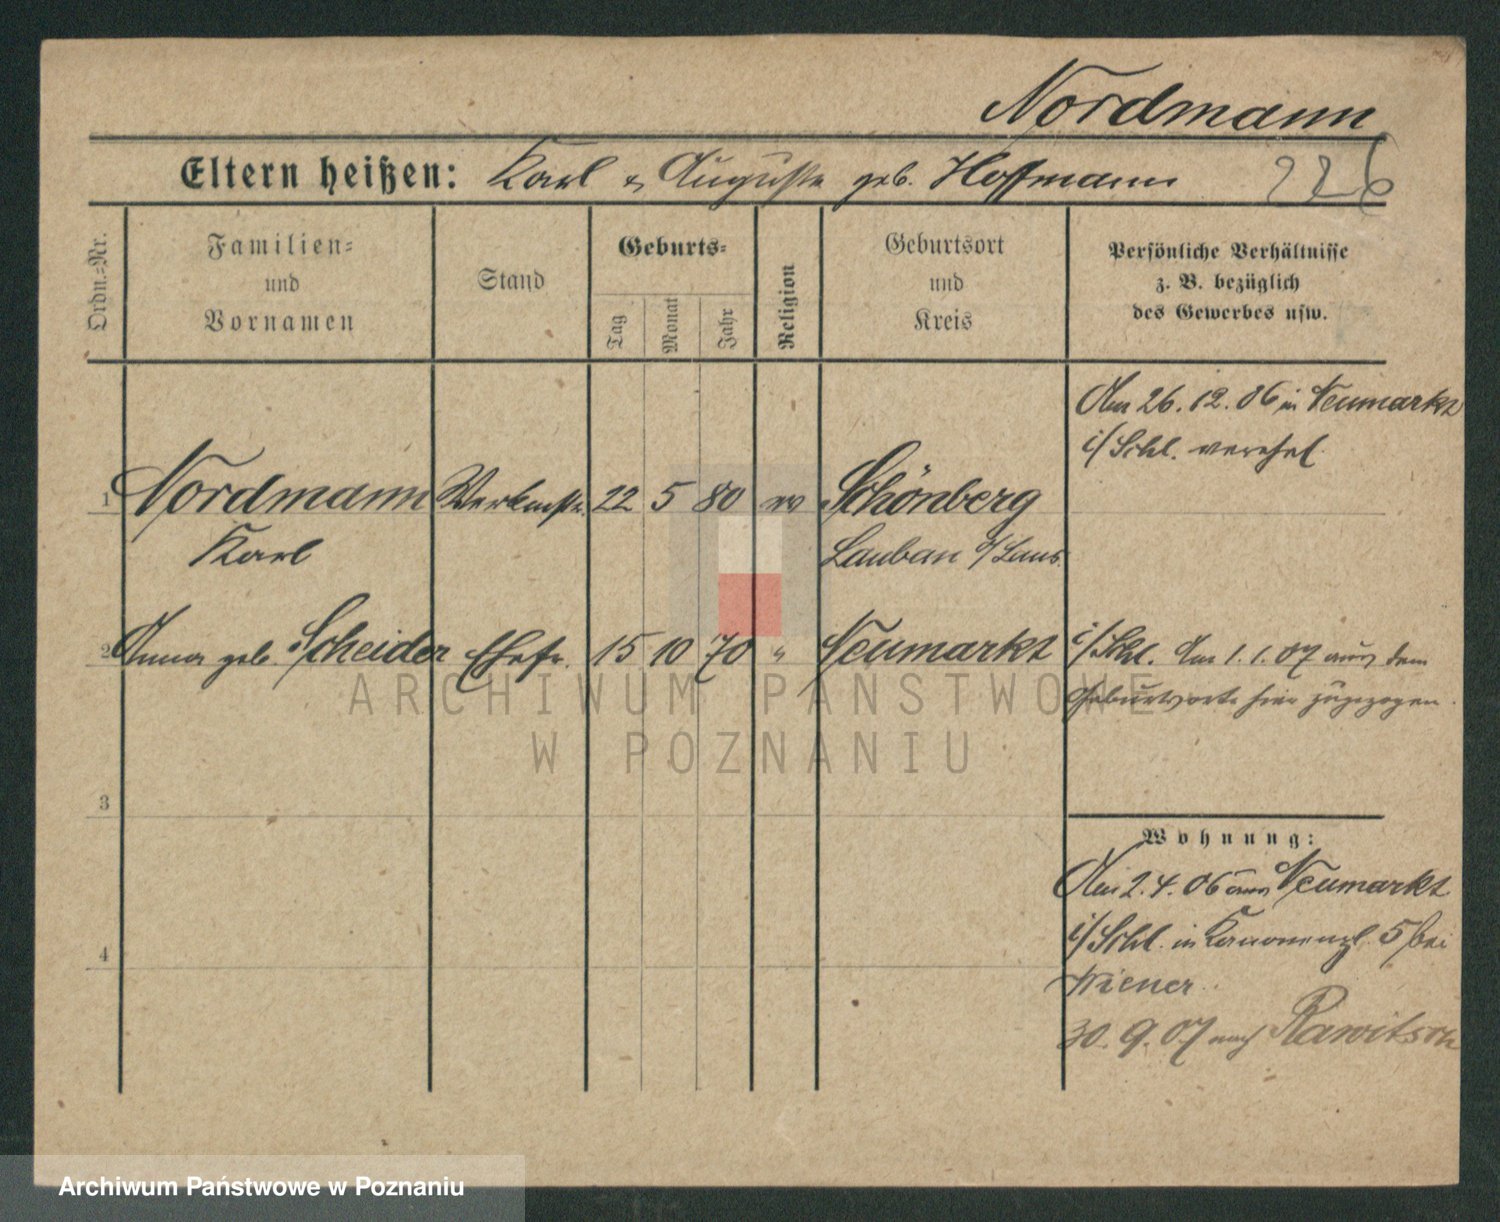 Nordmann
Eltern heißen: Karl & Auguste geb. Hoffmann 226
Ordn.=Nr.
Familien=
und
Vornamen
Stand
Geburts=
Tag
Monat
Jahr
Religion
Geburtsort
und
Kreis
Persönliche Verhältnisse
z. B. bezüglich
des Gewerbes usw.
Am 26.12.06 in Neumarkt
i/Schl. verehel.
1 Nordmann Werkmstr. 22 5 80 ev Schönberg
Karl Lauban O/Laus.
2 Anna geb. Scheider Ehefr. 15 10 70 " Neumarkt i/Schl. Am 1.1.07 aus dem
Geburtsorte hier zugezogen.
3
Wohnung:
Am 2.4.06 aus Neumarkt
i/Schl. in Kanonenpl. 5 bei
4
Wiener.
30.9.07 nach Rawitsch
ARCHIWUM PAŃSTWOWE
W POZNANIU
Archiwum Państwowe w Poznaniu